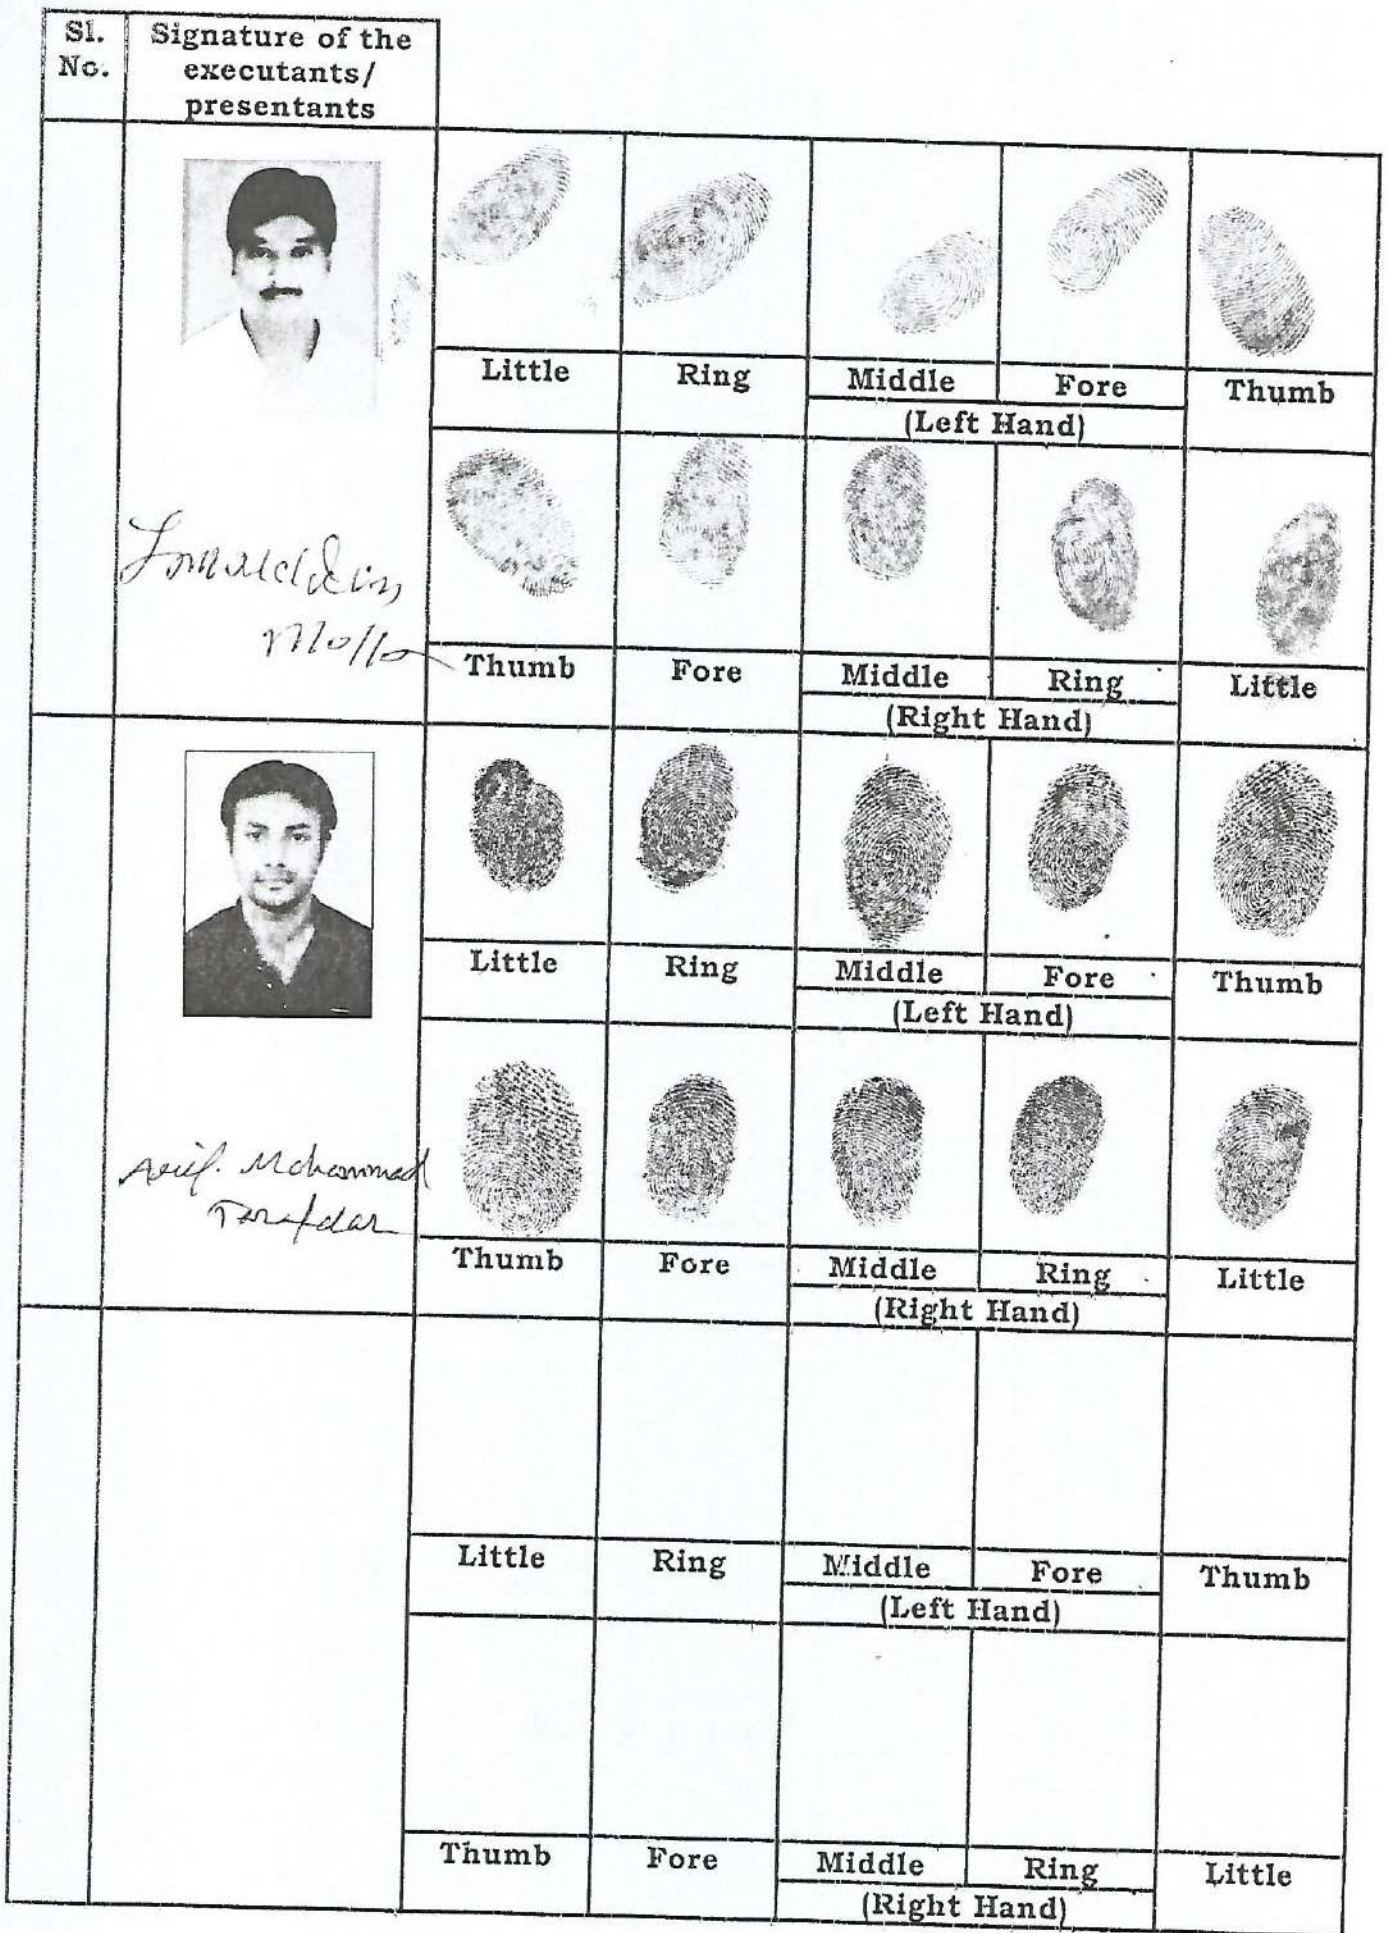 Sl.
No.
Signature of the
executants/
presentants
Little Ring Middle Fore Thumb
(Left Hand)
Molla
Thumb Fore Middle Ring Little
(Right Hand)
Little Ring Middle Fore Thumb
(Left Hand)
Arif. Mohammad
Tarafdar
Thumb Fore Middle Ring Little
(Right Hand)
Little Ring Middle Fore Thumb
(Left Hand)
Thumb Fore Middle Ring Little
(Right Hand)